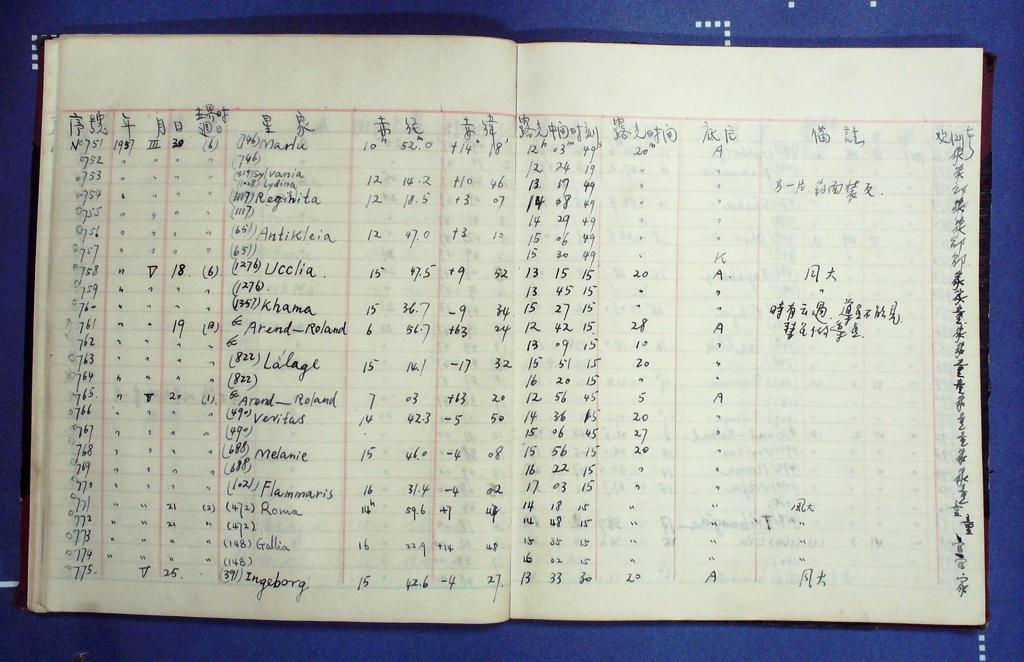 序號 年 月 日 世界时 週日 星象 赤經 赤緯 露光中间时刻 露光时间 底片 備註 观测者
No751 1957 III 30 (6) (746) Marlu 10h 52.0m +14° 18' 12h 03m 49s 20m A
0752 " " " " (746) 12 24 19 " "
0753 " " " " (319) Sylvania (1028) Lydina 12 14.2 +10 46 13 17 49 " "
0754 " " " " (1117) Reginita 12 18.5 +3 07 14 08 49 " "
0755 " " " " (1117) 14 29 49 " "
0756 " " " " (651) Antikleia 12 47.0 +3 10 15 06 49 " "
0757 " " " " (651) 15 30 49 " K
0758 " V 18 (6) (1276) Ucclia 15 47.5 +9 52 13 15 15 20 A 风大
0759 " " " " (1276) 13 45 15 " " "
0760 " " " " (1357) Khama 15 36.7 -9 34 15 27 15 " " 時有云過, 導星不能見
0761 " " 19 Arend-Roland 6 56.7 +63 24 12 42 15 28 A
0762 " " " " 13 09 15 10 "
0763 " " " " (822) Lalage 15 14.1 -17 32 15 51 15 20 "
0764 " " " " (822) 16 20 15 " "
0765 " V 20 (1) Arend-Roland 7 03 +63 20 12 56 45 5 A
0766 " " " " (490) Veritas 15 42.3 -5 50 14 36 15 20 "
0767 " " " " (490) 15 06 45 27 "
0768 " " " " (688) Melanie 15 46.0 -4 08 15 56 15 20 "
0769 " " " " (688) 16 22 15 " "
0770 " " " " (1021) Flammaris 16 31.4 -4 02 17 03 15 " "
0771 " " 21 (2) (472) Roma 14h 59.6 +7 44 14 18 15 " " 风大
0772 " " 21 " (472) 14 48 15 " " "
0773 " " " " (148) Gallia 16 22.9 +14 48 15 35 15 " " "
0774 " " " " (148) 16 02 15 " " "
0775 V 25 (391) Ingeborg 15 42.6 -4 27 13 33 30 20 A 风大